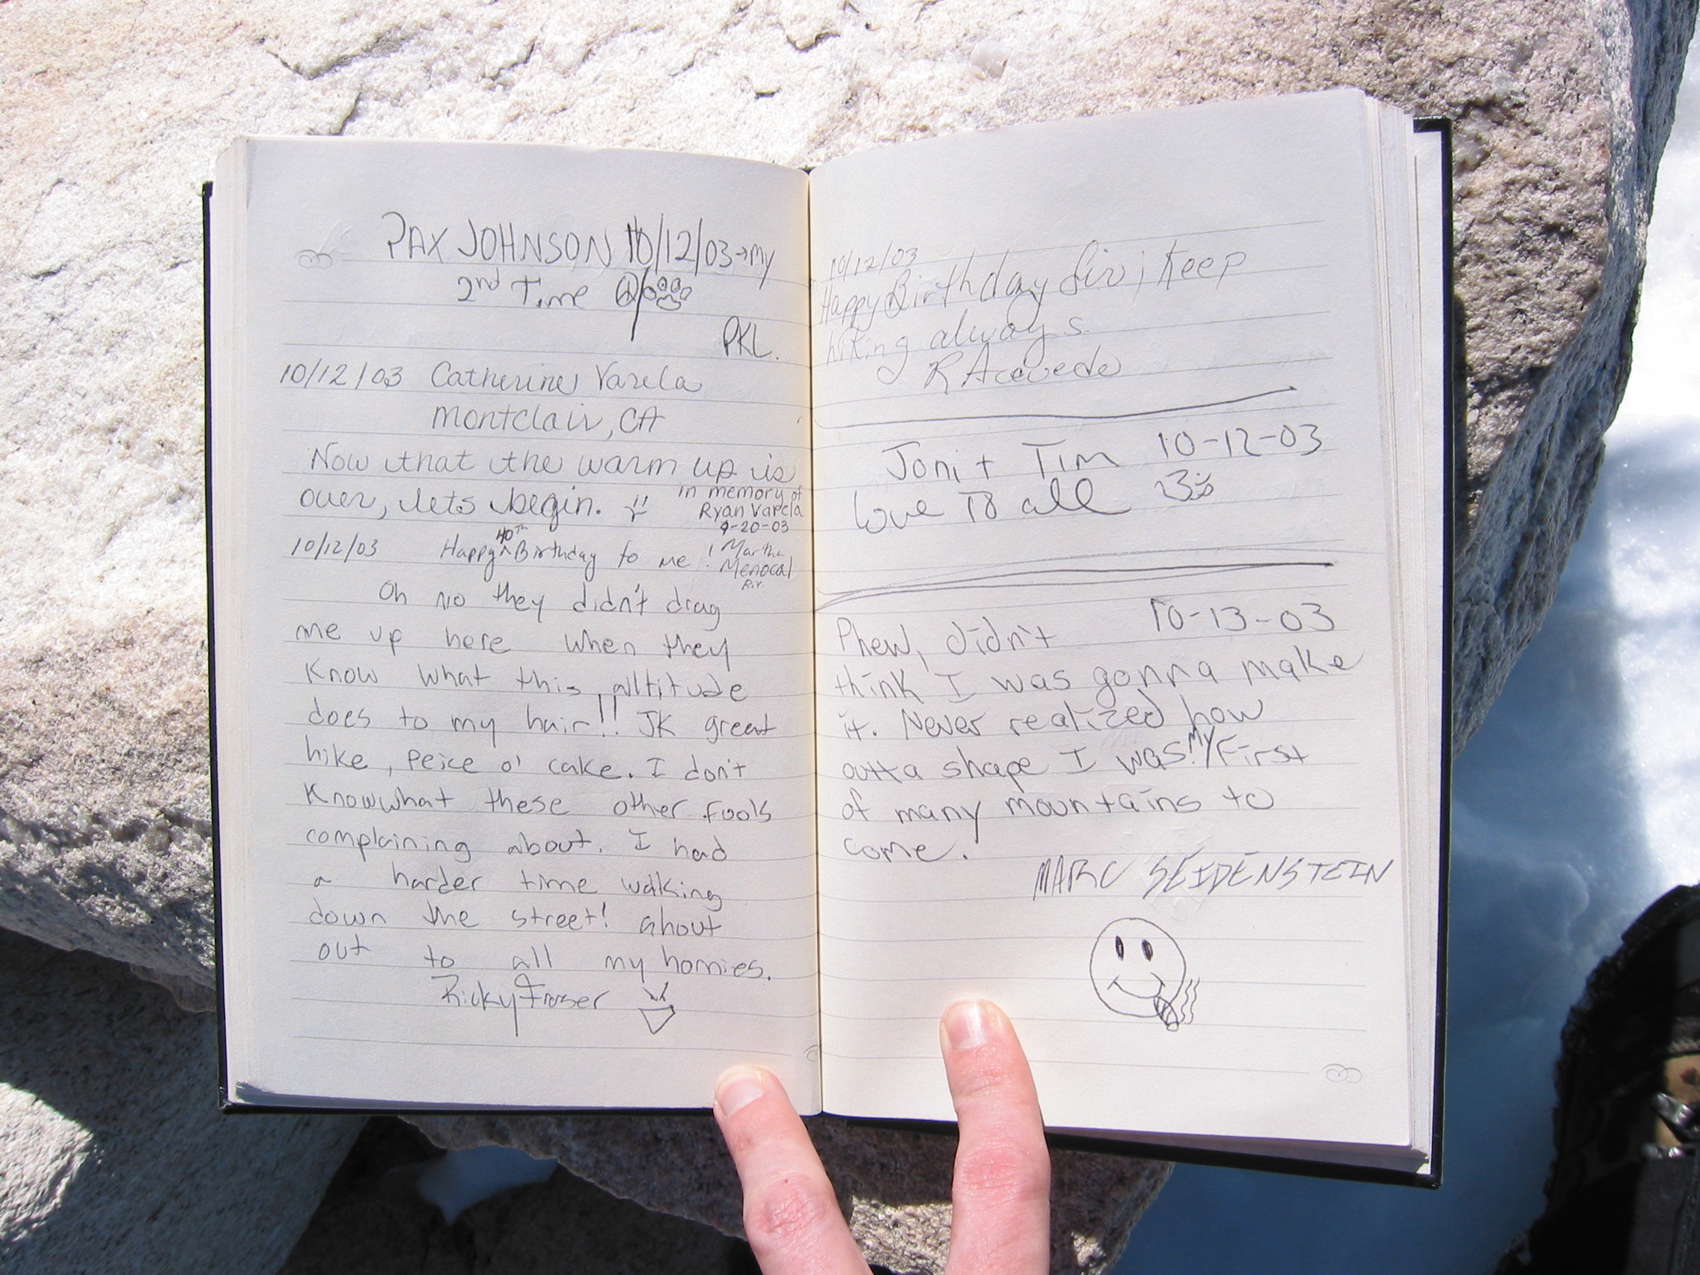 PAX JOHNSON 10/12/03→my
2nd Time
PKL.
10/12/03 Catherine Varela
Montclair, CA
Now that the warm up is
over, lets begin.
in memory of
Ryan Varela
9-20-03
10/12/03 Happy 40th Birthday to me!
Martha
Menocal
Oh No they didn't drag
me up here when they
know what this altitude
does to my hair!! JK great
hike, peice o' cake. I don't
know what these other fools
complaining about. I had
a harder time walking
down the street! Shout
out to all my homies.
Ricky Fraser
10/12/03
Happy Birthday Liv; Keep
hiking always.
R Acevedo
Joni + Tim 10-12-03
Love TB all
10-13-03
Phew, didn't
think I was gonna make
it. Never realized how
outta shape I was! My First
of many mountains to
come.
MARC SEIDENSTEIN